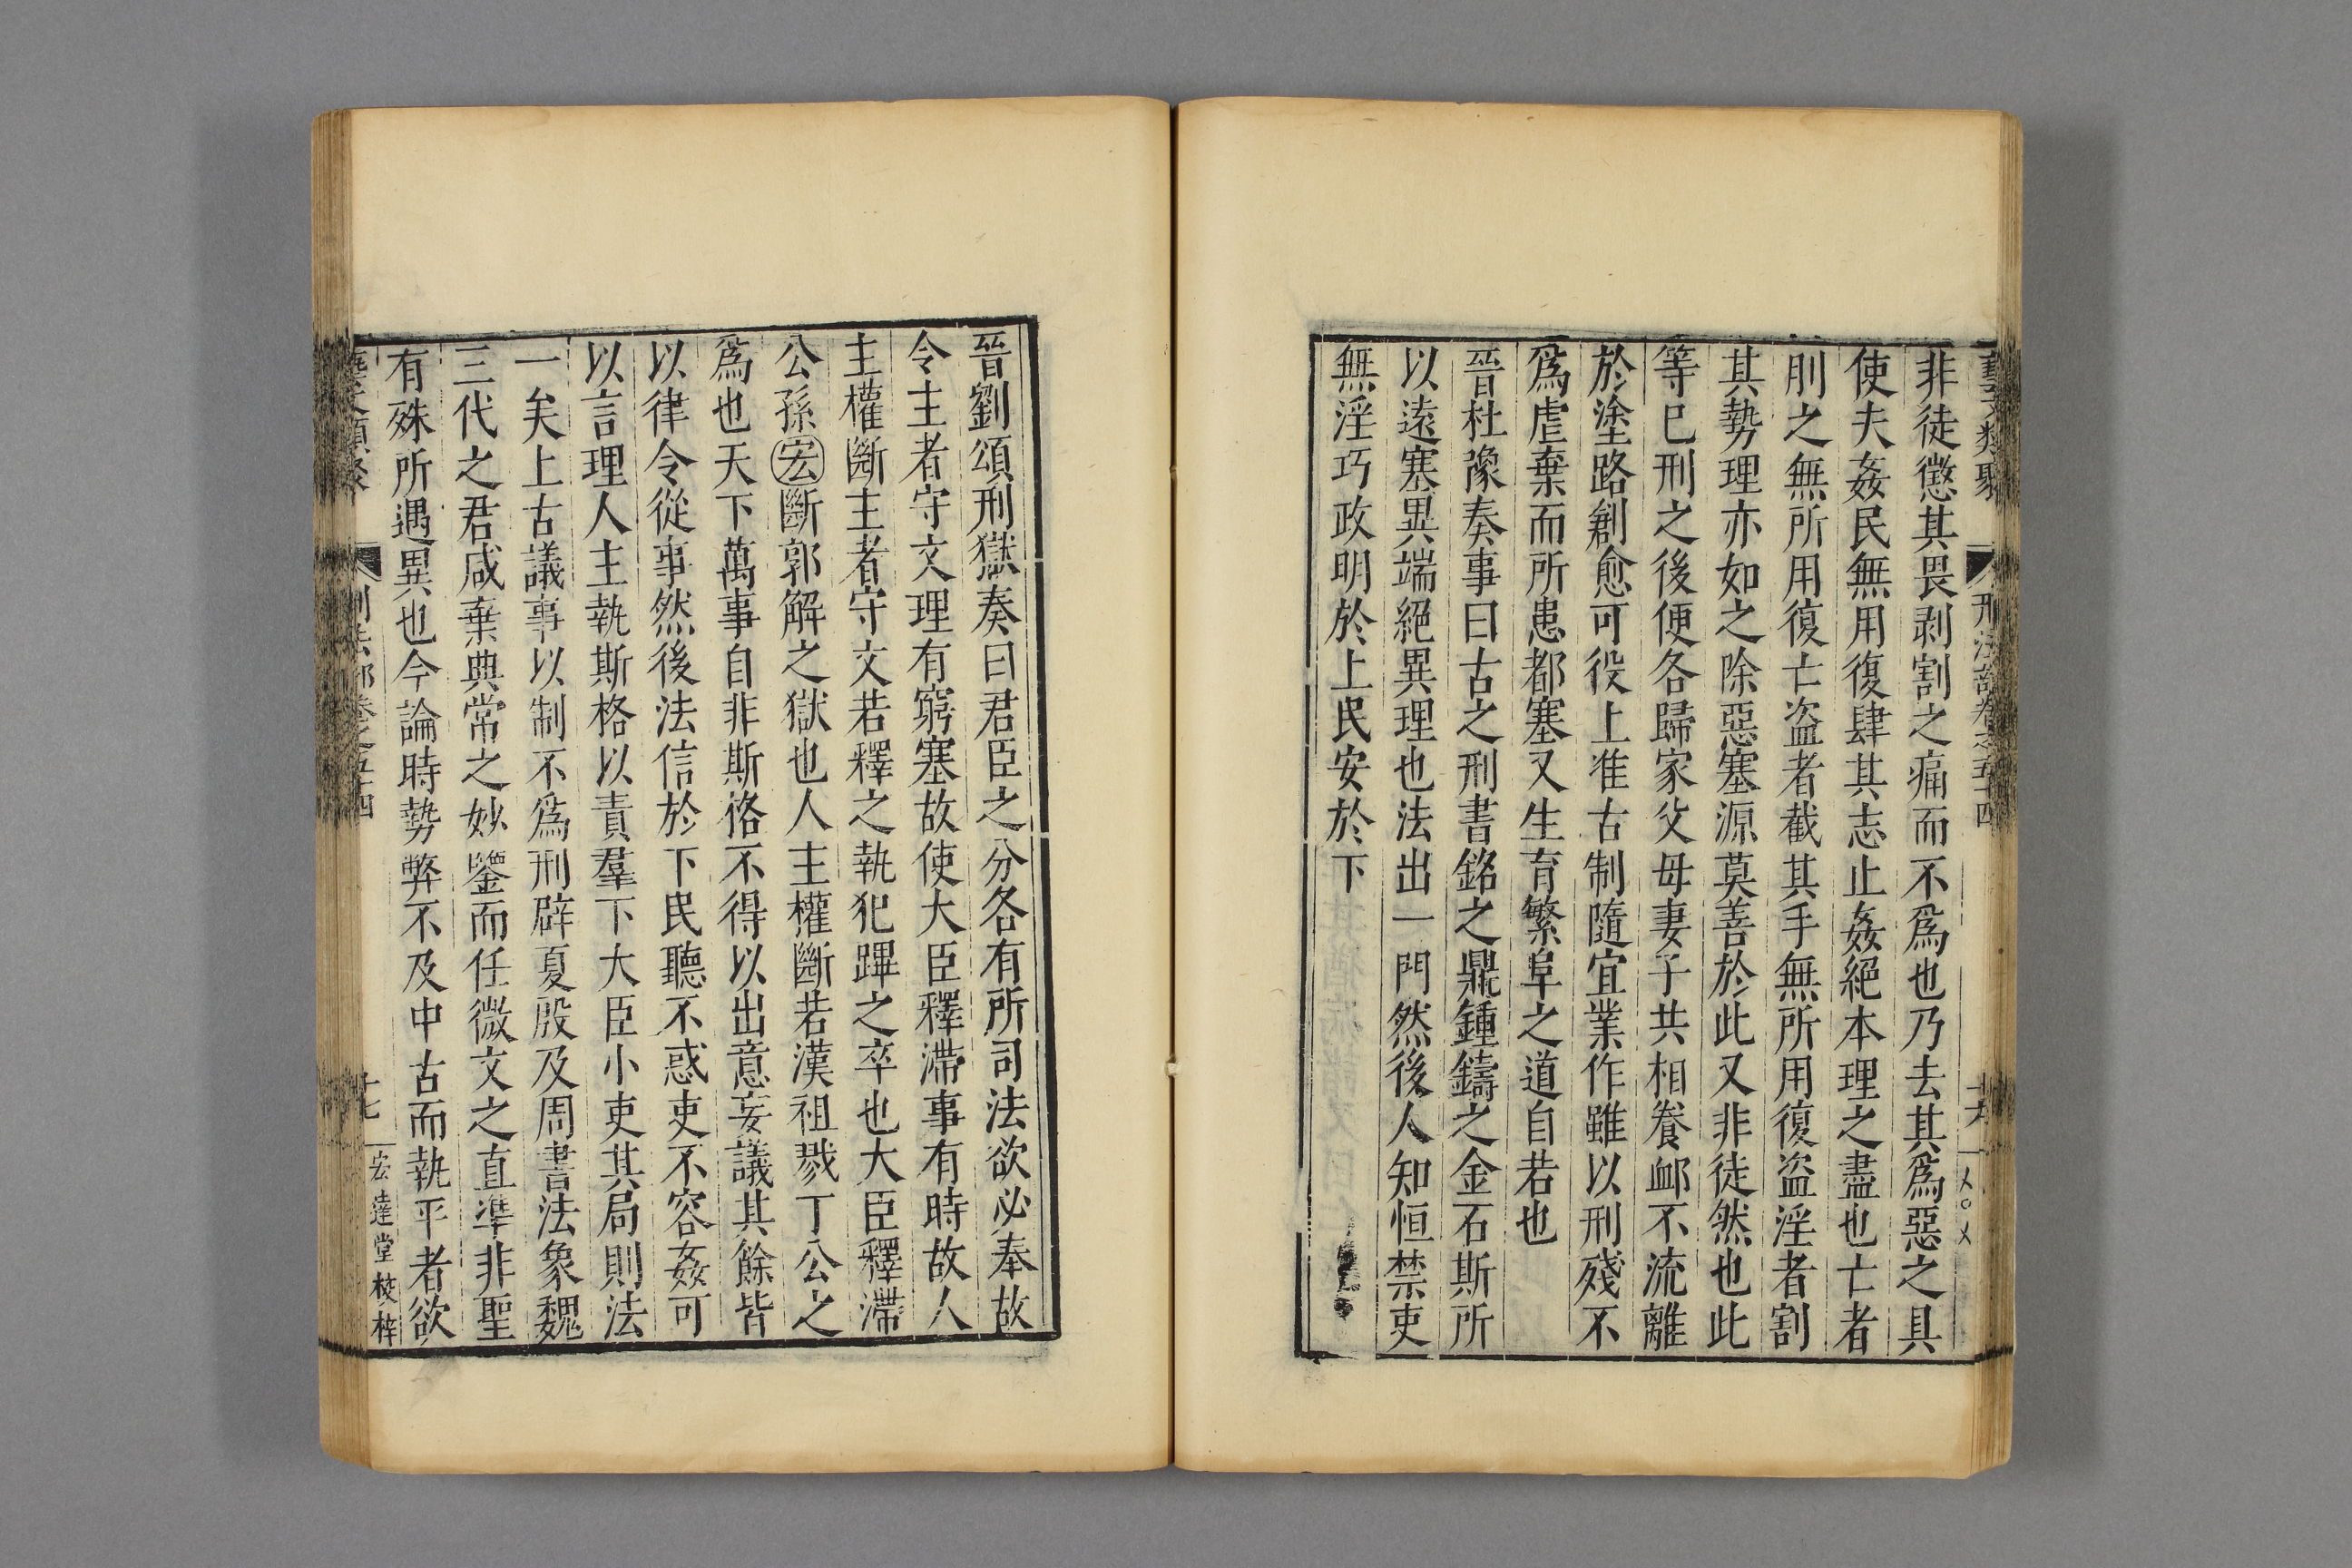 藝文類聚 刑法部卷之五十四 十六
非徒懲其畏剥割之痛而不爲也乃去其爲惡之具
使夫姦民無用復肆其志止姦絕本理之盡也亡者
刖之無所用復亡盗者截其手無所用復盗淫者割
其勢理亦如之除惡塞源莫善於此又非徒然也此
等巳刑之後便各歸家父母妻子共相養䘏不流離
於塗路創愈可役上准古制隨宜業作雖以刑殘不
爲虐棄而所患都塞又生育繁阜之道自若也
晉杜豫奏事曰古之刑書銘之鼎鍾鑄之金石斯所
以遠塞異端絕異理也法出一門然後人知恒禁吏
無淫巧政明於上民安於下
晉劉頌刑獄奏曰君臣之分各有所司法欲必奉故
令主者守文理有窮塞故使大臣釋滯事有時故人
主權斷主者守文若釋之執犯蹕之卒也大臣釋滯
公孫宏斷郭解之獄也人主權斷若漢祖戮丁公之
爲也天下萬事自非斯格不得以出意妄議其餘皆
以律令從事然後法信於下民聽不惑吏不容姦可
以言理人主執斯格以責羣下大臣小吏其局則法
一矣上古議事以制不爲刑辟夏殷及周書法象魏
三代之君咸棄典常之妙鑒而任微文之直準非聖
有殊所遇異也今論時勢弊不及中古而執平者欲
藝文類聚 刑法部卷之五十四 十七 宏達堂校梓